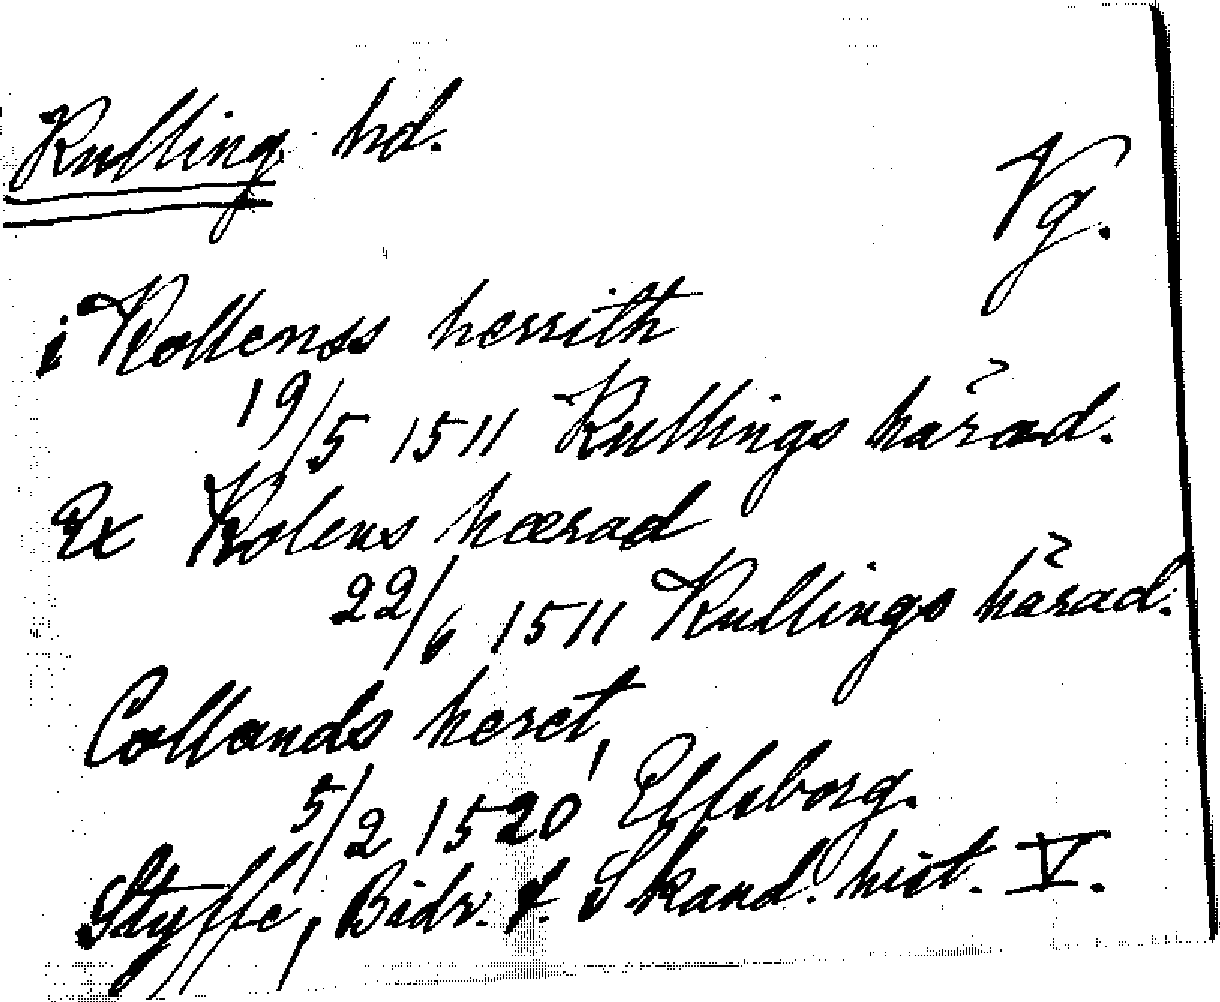 Kulling hd.
Vg.
i Kollenss herrith
19/5 1511 Kullings härad.
Ex Kolens hærad
22/6 1511 Kullings härad.
Collands heret,
5/2 1520 Elfsborg.
Styffe, Bidr. t. Skand. hist. V.